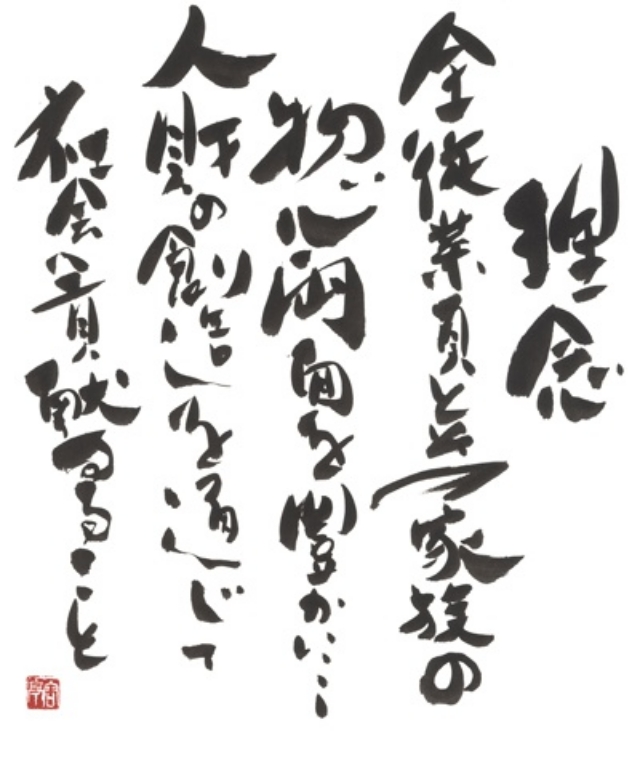 理念
全従業員と家族の
物心両面を豊かにし
人財の創造を通じて
社会に貢献すること